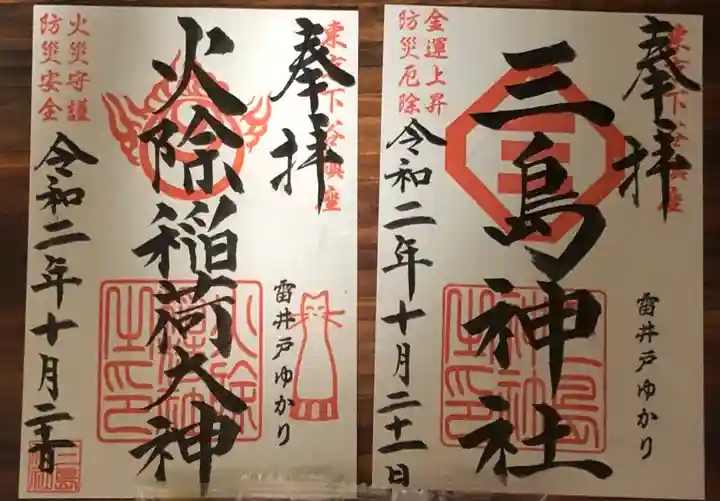 東京下谷鎮座
奉拝
雷井戸ゆかり
火除稲荷大神
火災守護
防災安全
令和二年十月二十一日
三島
東京下谷鎮座
奉拝
雷井戸ゆかり
三島神社
金運上昇
防災厄除
令和二年十月二十一日